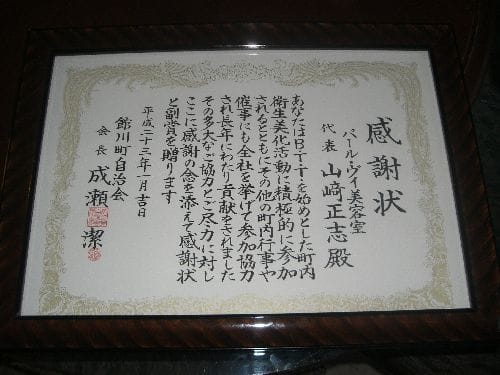 感謝状
パール・ヴイ美容室
代表 山﨑正志 殿
あなたはBTTを始めとした町内
衛生美化活動に積極的に参加
されるとともにその他の町内行事や
催事にも全社を挙げて参加協力
され長年にわたり貢献をされました
その多大なご協力とご尽力に対し
ここに感謝の念を添えて感謝状
と副賞を贈ります
平成二十三年一月吉日
館川町自治会
会長 成瀬 潔